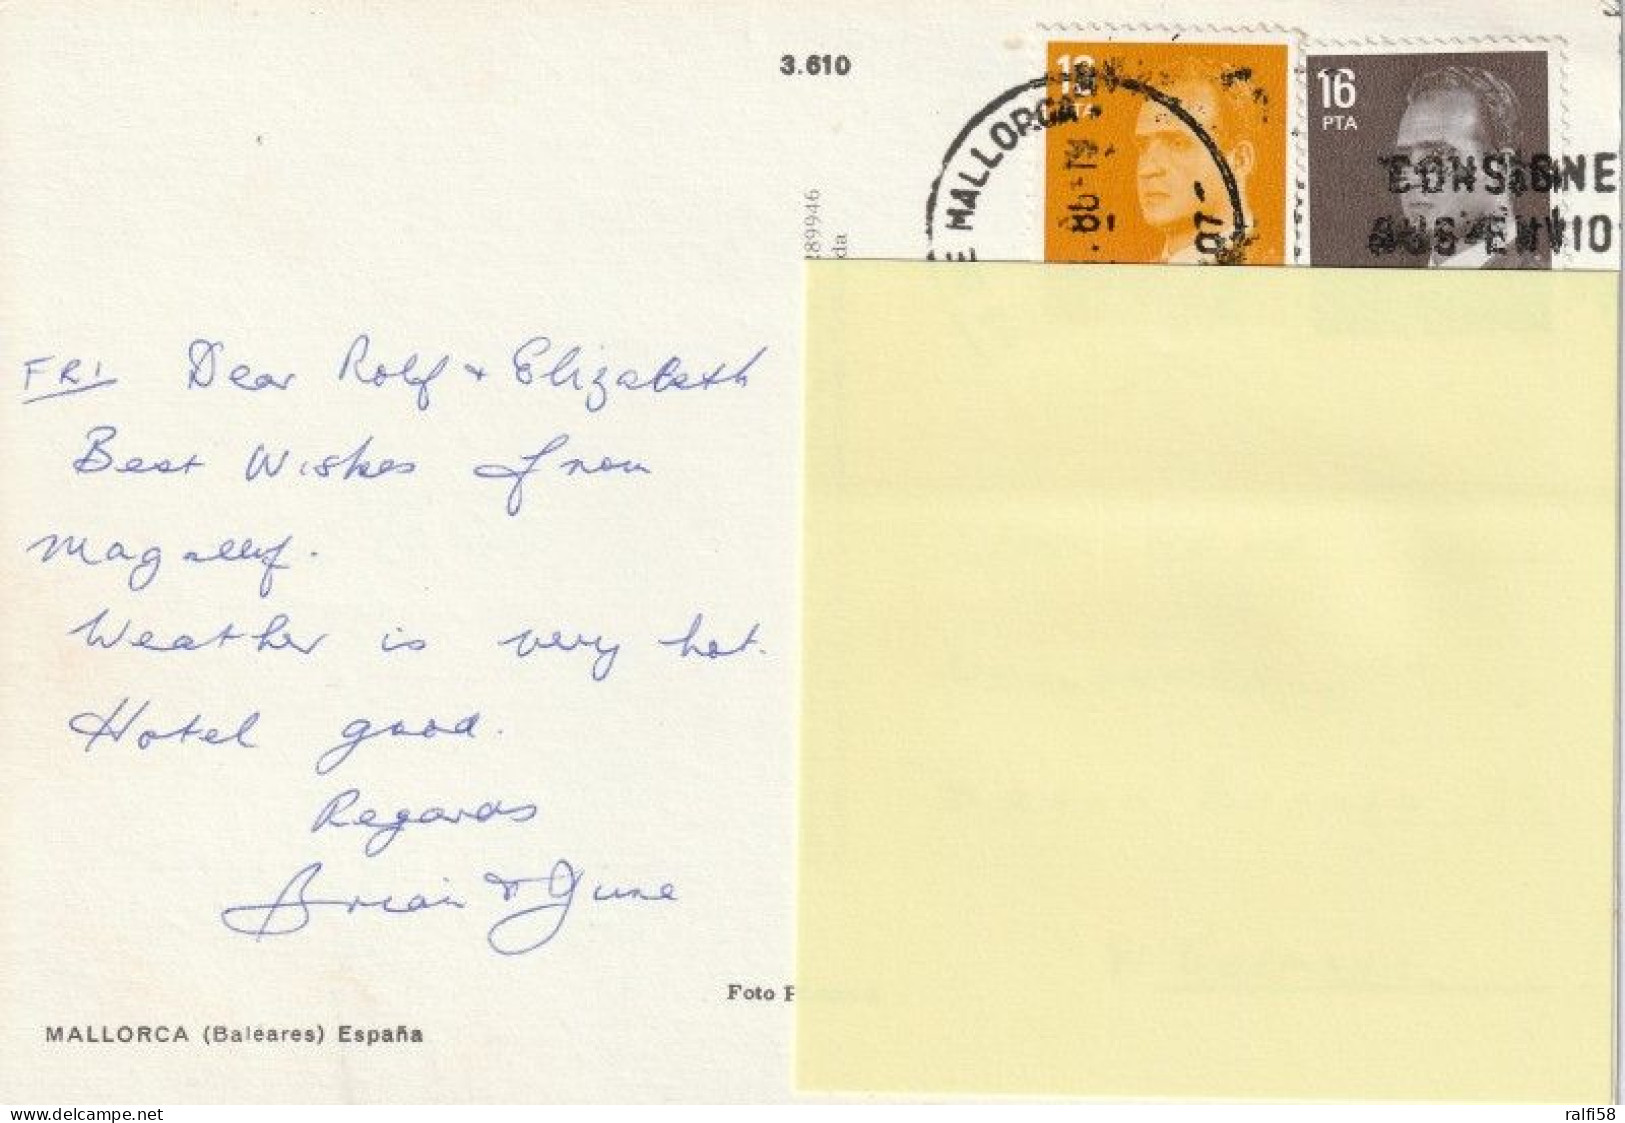 3.610
16
PTA
E MALLORCA
CONSIGNE
SUS ENVIO
289946
da
FRI Dear Rolf + Elizabeth
Best Wishes from
Magalluf.
Weather is very hot.
Hotel good.
Regards
Brian & June
Foto
MALLORCA (Baleares) España
www.delcampe.net
ralfi58